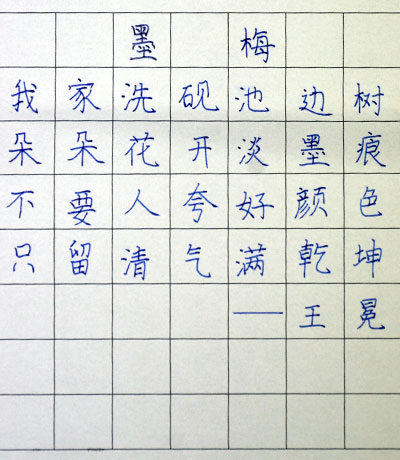 墨梅
我家洗砚池边树
朵朵花开淡墨痕
不要人夸好颜色
只留清气满乾坤
——王冕